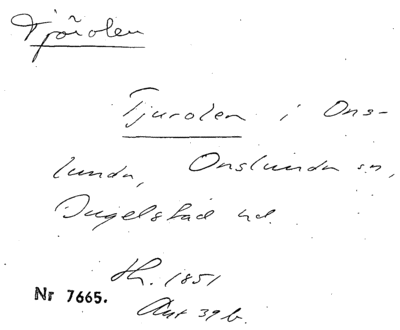 Tjörolen
Tjurolen i Ons-
lunda, Onslunda sn,
Ingelstad hd.
Hh. 1851
Nr 7665.
Akt 39 b.